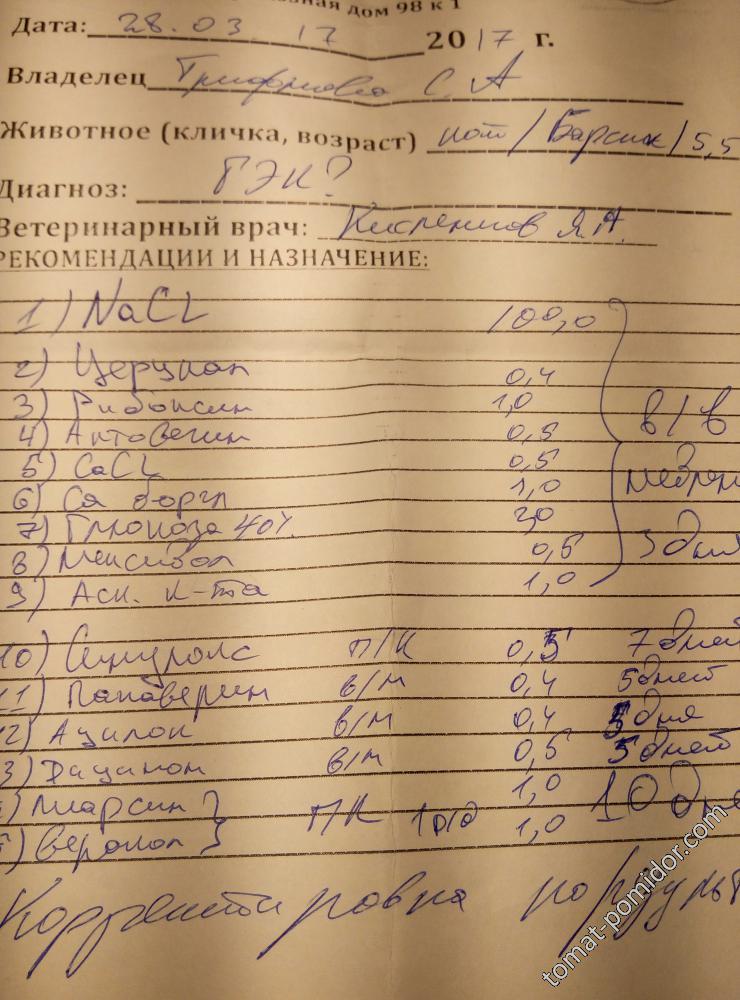 дом 98 к 1
Дата: 28.03.17 2017 г.
Владелец С.А
Животное (кличка, возраст) кот/Барсик/5,5
Диагноз: ГЭК?
Ветеринарный врач: Я.А.
РЕКОМЕНДАЦИИ И НАЗНАЧЕНИЕ:
1) NaCL 100,0
2) Церукал 0,4
3) Рибоксин 1,0
4) Актовегин 0,5 в/в
5) CaCL 0,5
6) Ca боргл 1,0
7) Глюкоза 40%
8) Мексидол 0,5 3 дня
9) Аск. к-та 1,0
10) Синулокс п/к 0,5 7 дней
11) Папаверин в/м 0,4 5 дней
12) Ацилок в/м 0,4 дня
3) Дицинон в/м 0,5 5 дней
) Лиарсин } п/к 1 р/д 1,0 10 дне
) Веракол } 1,0
Корректировка по
tomat-pomidor.com